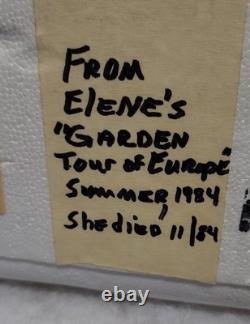 FROM
ElENE's
"GARDEN
Tour of EuropE"
Summer, 1984
She died 11/84